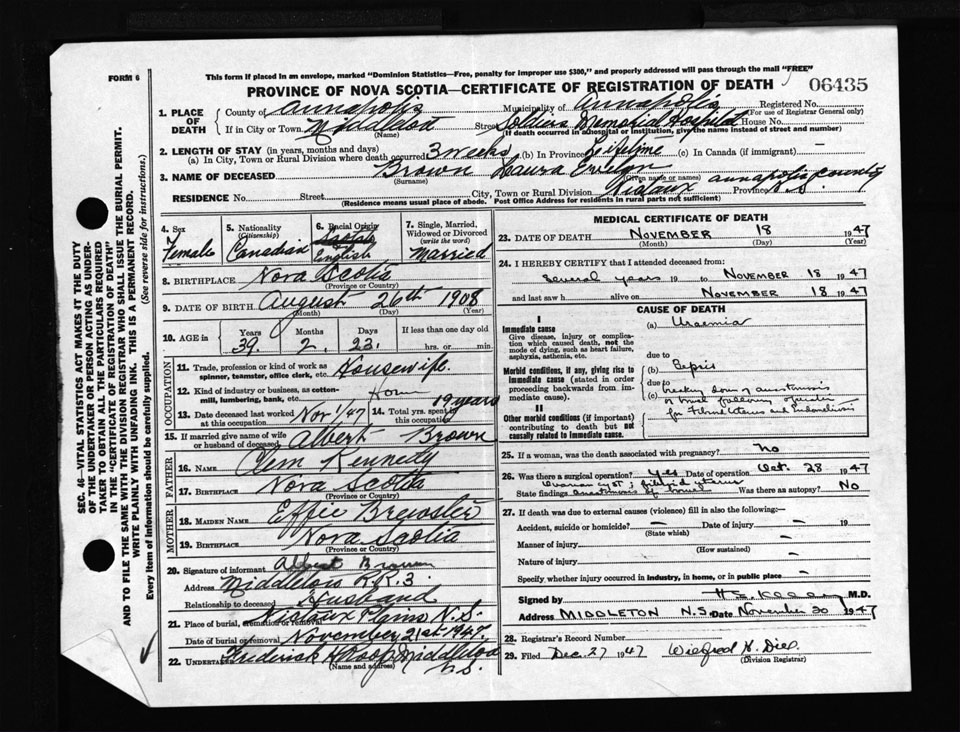 FORM 6
This form if placed in an envelope, marked "Dominion Statistics—Free, penalty for improper use $300," and properly addressed will pass through the mail "FREE"
PROVINCE OF NOVA SCOTIA—CERTIFICATE OF REGISTRATION OF DEATH
06435
1. PLACE OF DEATH
County of Annapolis Municipality of Annapolis Registered No.
(For use of Registrar General only)
If in City or Town Middleton Street Soldiers Memorial Hospital House No.
(Name) (If death occurred in a hospital or institution, give the name instead of street and number)
2. LENGTH OF STAY (in years, months and days)
(a) In City, Town or Rural Division where death occurred 3 weeks (b) In Province Lifetime (c) In Canada (if immigrant) —
3. NAME OF DECEASED Brown Laura Evelyn
(Surname) (Given name or names)
RESIDENCE No. Street City, Town or Rural Division Nictaux Annapolis County Province N.S.
(Residence means usual place of abode. Post Office Address for residents in rural parts not sufficient)
4. Sex
Female
5. Nationality
(Citizenship)
Canadian
6. Racial Origin
English
7. Single, Married, Widowed or Divorced
(write the word)
Married
8. BIRTHPLACE Nova Scotia
(Province or Country)
9. DATE OF BIRTH August 26th 1908
(Month) (Day) (Year)
10. AGE in Years Months Days If less than one day old
39 2 23 hrs. or min.
OCCUPATION
11. Trade, profession or kind of work as spinner, teamster, office clerk, etc. Housewife
12. Kind of industry or business, as cotton-mill, lumbering, bank, etc. Home
13. Date deceased last worked at this occupation Nov 1/47
14. Total yrs. spent in this occupation 19 years
15. If married give name of wife or husband of deceased Albert Brown
FATHER
16. NAME Clem Kennedy
17. BIRTHPLACE Nova Scotia
(Province or Country)
MOTHER
18. MAIDEN NAME Effie Brewster
19. BIRTHPLACE Nova Scotia
(Province or Country)
20. Signature of informant Albert Brown
Address Middleton R.R.3.
Relationship to deceased Husband
21. Place of burial, cremation or removal Nictaux Plains N.S.
Date of burial or removal November 21st 1947.
22. Undertaker Frederick A Roop Middleton N.S.
(Name and address)
MEDICAL CERTIFICATE OF DEATH
23. DATE OF DEATH NOVEMBER 18 1947
(Month) (Day) (Year)
24. I HEREBY CERTIFY that I attended deceased from:
Several years 19 to NOVEMBER 18 1947
and last saw h alive on NOVEMBER 18 1947
CAUSE OF DEATH
I
Immediate cause
Give disease, injury or complication which caused death, not the mode of dying, such as heart failure, asphyxia, asthenia, etc.
(a) Uraemia
due to
Morbid conditions, if any, giving rise to immediate cause (stated in order proceeding backwards from immediate cause).
(b) Sepsis
due to
(c) breaking down of anastomosis
of bowel following operation
for Fibroid Uterus and Endometriosis
II
Other morbid conditions (if important) contributing to death but not causally related to immediate cause.
25. If a woman, was the death associated with pregnancy? No
26. Was there a surgical operation? Yes Date of operation Oct. 28 1947
State findings Ovarian cyst; fibroid uterus
anastomosis of bowel Was there an autopsy? No
27. If death was due to external causes (violence) fill in also the following:—
Accident, suicide or homicide? — Date of injury — 19
(State which)
Manner of injury —
(How sustained)
Nature of injury —
Specify whether injury occurred in industry, in home, or in public place —
Signed by M.D.
Address MIDDLETON N.S. Date November 30 1947
28. Registrar's Record Number
29. Filed Dec. 27 1947
(Division Registrar)
SEC. 46—VITAL STATISTICS ACT MAKES IT THE DUTY
OF THE UNDERTAKER OR PERSON ACTING AS UNDERTAKER
TO OBTAIN ALL THE PARTICULARS REQUIRED
IN THE "CERTIFICATE OF REGISTRATION OF DEATH"
AND TO FILE THE SAME WITH THE DIVISION REGISTRAR WHO SHALL ISSUE THE BURIAL PERMIT.
WRITE PLAINLY WITH UNFADING INK. THIS IS A PERMANENT RECORD.
Every item of Information should be carefully supplied. (See reverse side for instructions.)